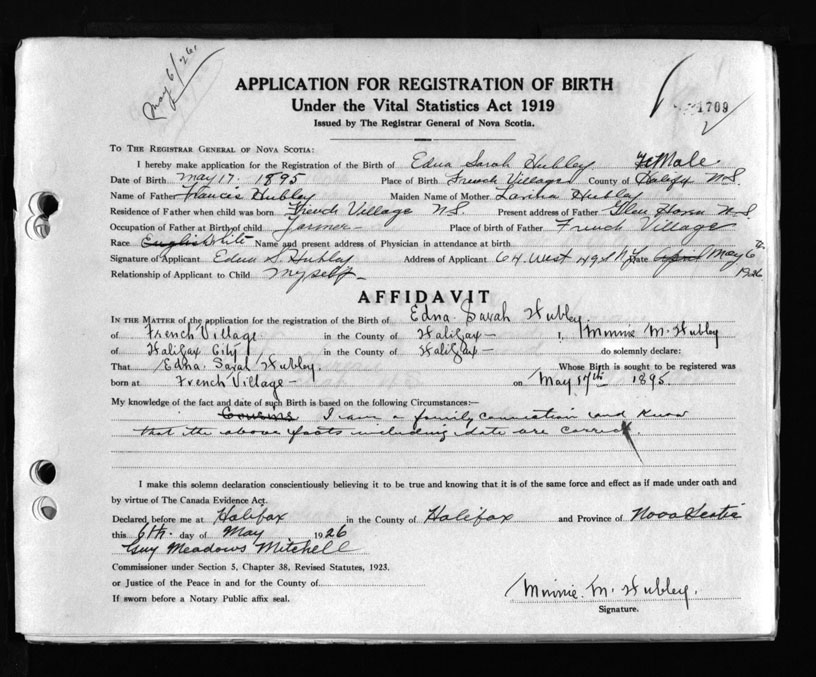 May 6/26.
APPLICATION FOR REGISTRATION OF BIRTH
Under the Vital Statistics Act 1919
Issued by The Registrar General of Nova Scotia.
1709
TO THE REGISTRAR GENERAL OF NOVA SCOTIA:
I hereby make application for the Registration of the Birth of Edna Sarah Hubley FeMale
Date of Birth May 17. 1895 Place of Birth French Village County of Halifx N.S.
Name of Father Francis Hubley Maiden Name of Mother Hubley
Residence of Father when child was born French Village N.S. Present address of Father Glen Haven N.S.
Occupation of Father at Birth of child Farmer Place of birth of Father French Village
Race English White Name and present address of Physician in attendance at birth
Signature of Applicant Edna S. Hubley Address of Applicant 64 West 49 St N.Y. Date April May 6 th
1926
Relationship of Applicant to Child Myself
AFFIDAVIT
IN THE MATTER of the application for the registration of the Birth of Edna Sarah Hubley.
of French Village in the County of Halifax I, Minnie M. Hubley
of Halifax City, in the County of Halifax do solemnly declare:
That Edna Sarah Hubley. Whose Birth is sought to be registered was
born at French Village on May 17th 1895
My knowledge of the fact and date of such Birth is based on the following Circumstances:—
Cousins I am a family connection and know
that the above facts including date are correct.
I make this solemn declaration conscientiously believing it to be true and knowing that it is of the same force and effect as if made under oath and
by virtue of The Canada Evidence Act.
Declared before me at Halifax in the County of Halifax and Province of Nova Scotia
this 6th. day of May 1926
Guy Meadows Mitchell
Commissioner under Section 5, Chapter 38, Revised Statutes, 1923.
or Justice of the Peace in and for the County of
If sworn before a Notary Public affix seal.
Minnie M. Hubley.
Signature.